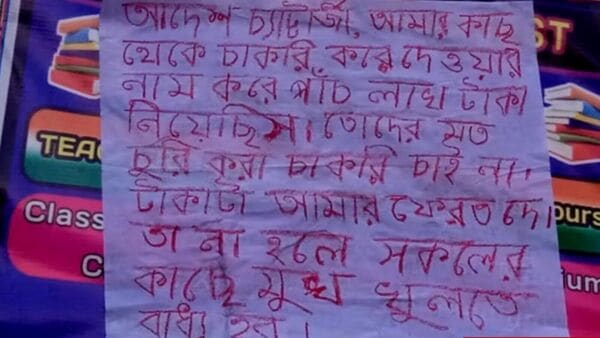 আদেশ চ্যাটার্জী, আমার কাছ
থেকে চাকরি করে দেওয়ার
নাম করে পাঁচ লাখ টাকা
নিয়েছিস। তোদের মত
চুরি করা চাকরি চাই না।
টাকাটা আমার ফেরত দে।
তা না হলে সকলের
কাছে মুখ খুলতে
বাধ্য হব।
ST
TEA
Class
C
ours
ium